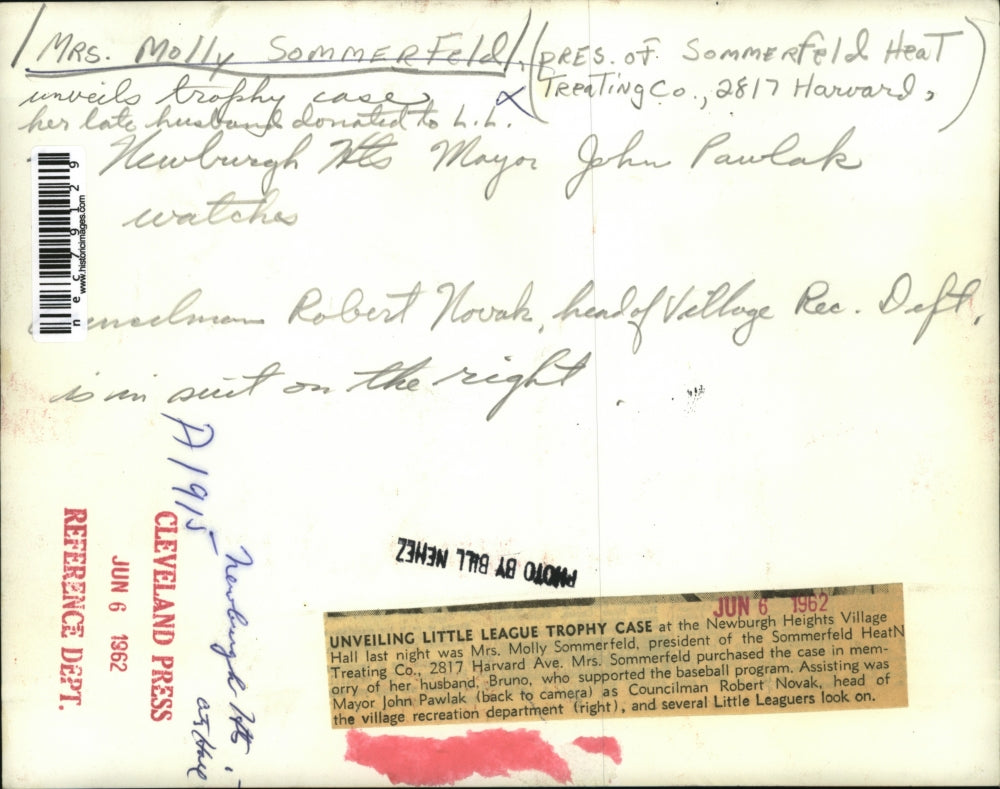 MRS. Molly SOMMERFeld, (PRES. OF SOMMERFeld HeaT
TReaTing Co., 2817 Harvard,)
unveils trophy case
her late husband donated to L.L.
Newburgh Hts Mayor John Pawlak
watches
Robert Novak, head of Village Rec. Dept.
is in suit on the right.
nec79129
www.historicimages.com
A1915 -
Newburgh Hts -
CLEVELAND PRESS
JUN 6 1962
REFERENCE DEPT.
PHOTO BY BILL NEHEZ
JUN 6 1962
UNVEILING LITTLE LEAGUE TROPHY CASE at the Newburgh Heights Village
Hall last night was Mrs. Molly Sommerfeld, president of the Sommerfeld HeatN
Treating Co., 2817 Harvard Ave. Mrs. Sommerfeld purchased the case in mem-
orry of her husband, Bruno, who supported the baseball program. Assisting was
Mayor John Pawlak (back to camera) as Councilman Robert Novak, head of
the village recreation department (right), and several Little Leaguers look on.